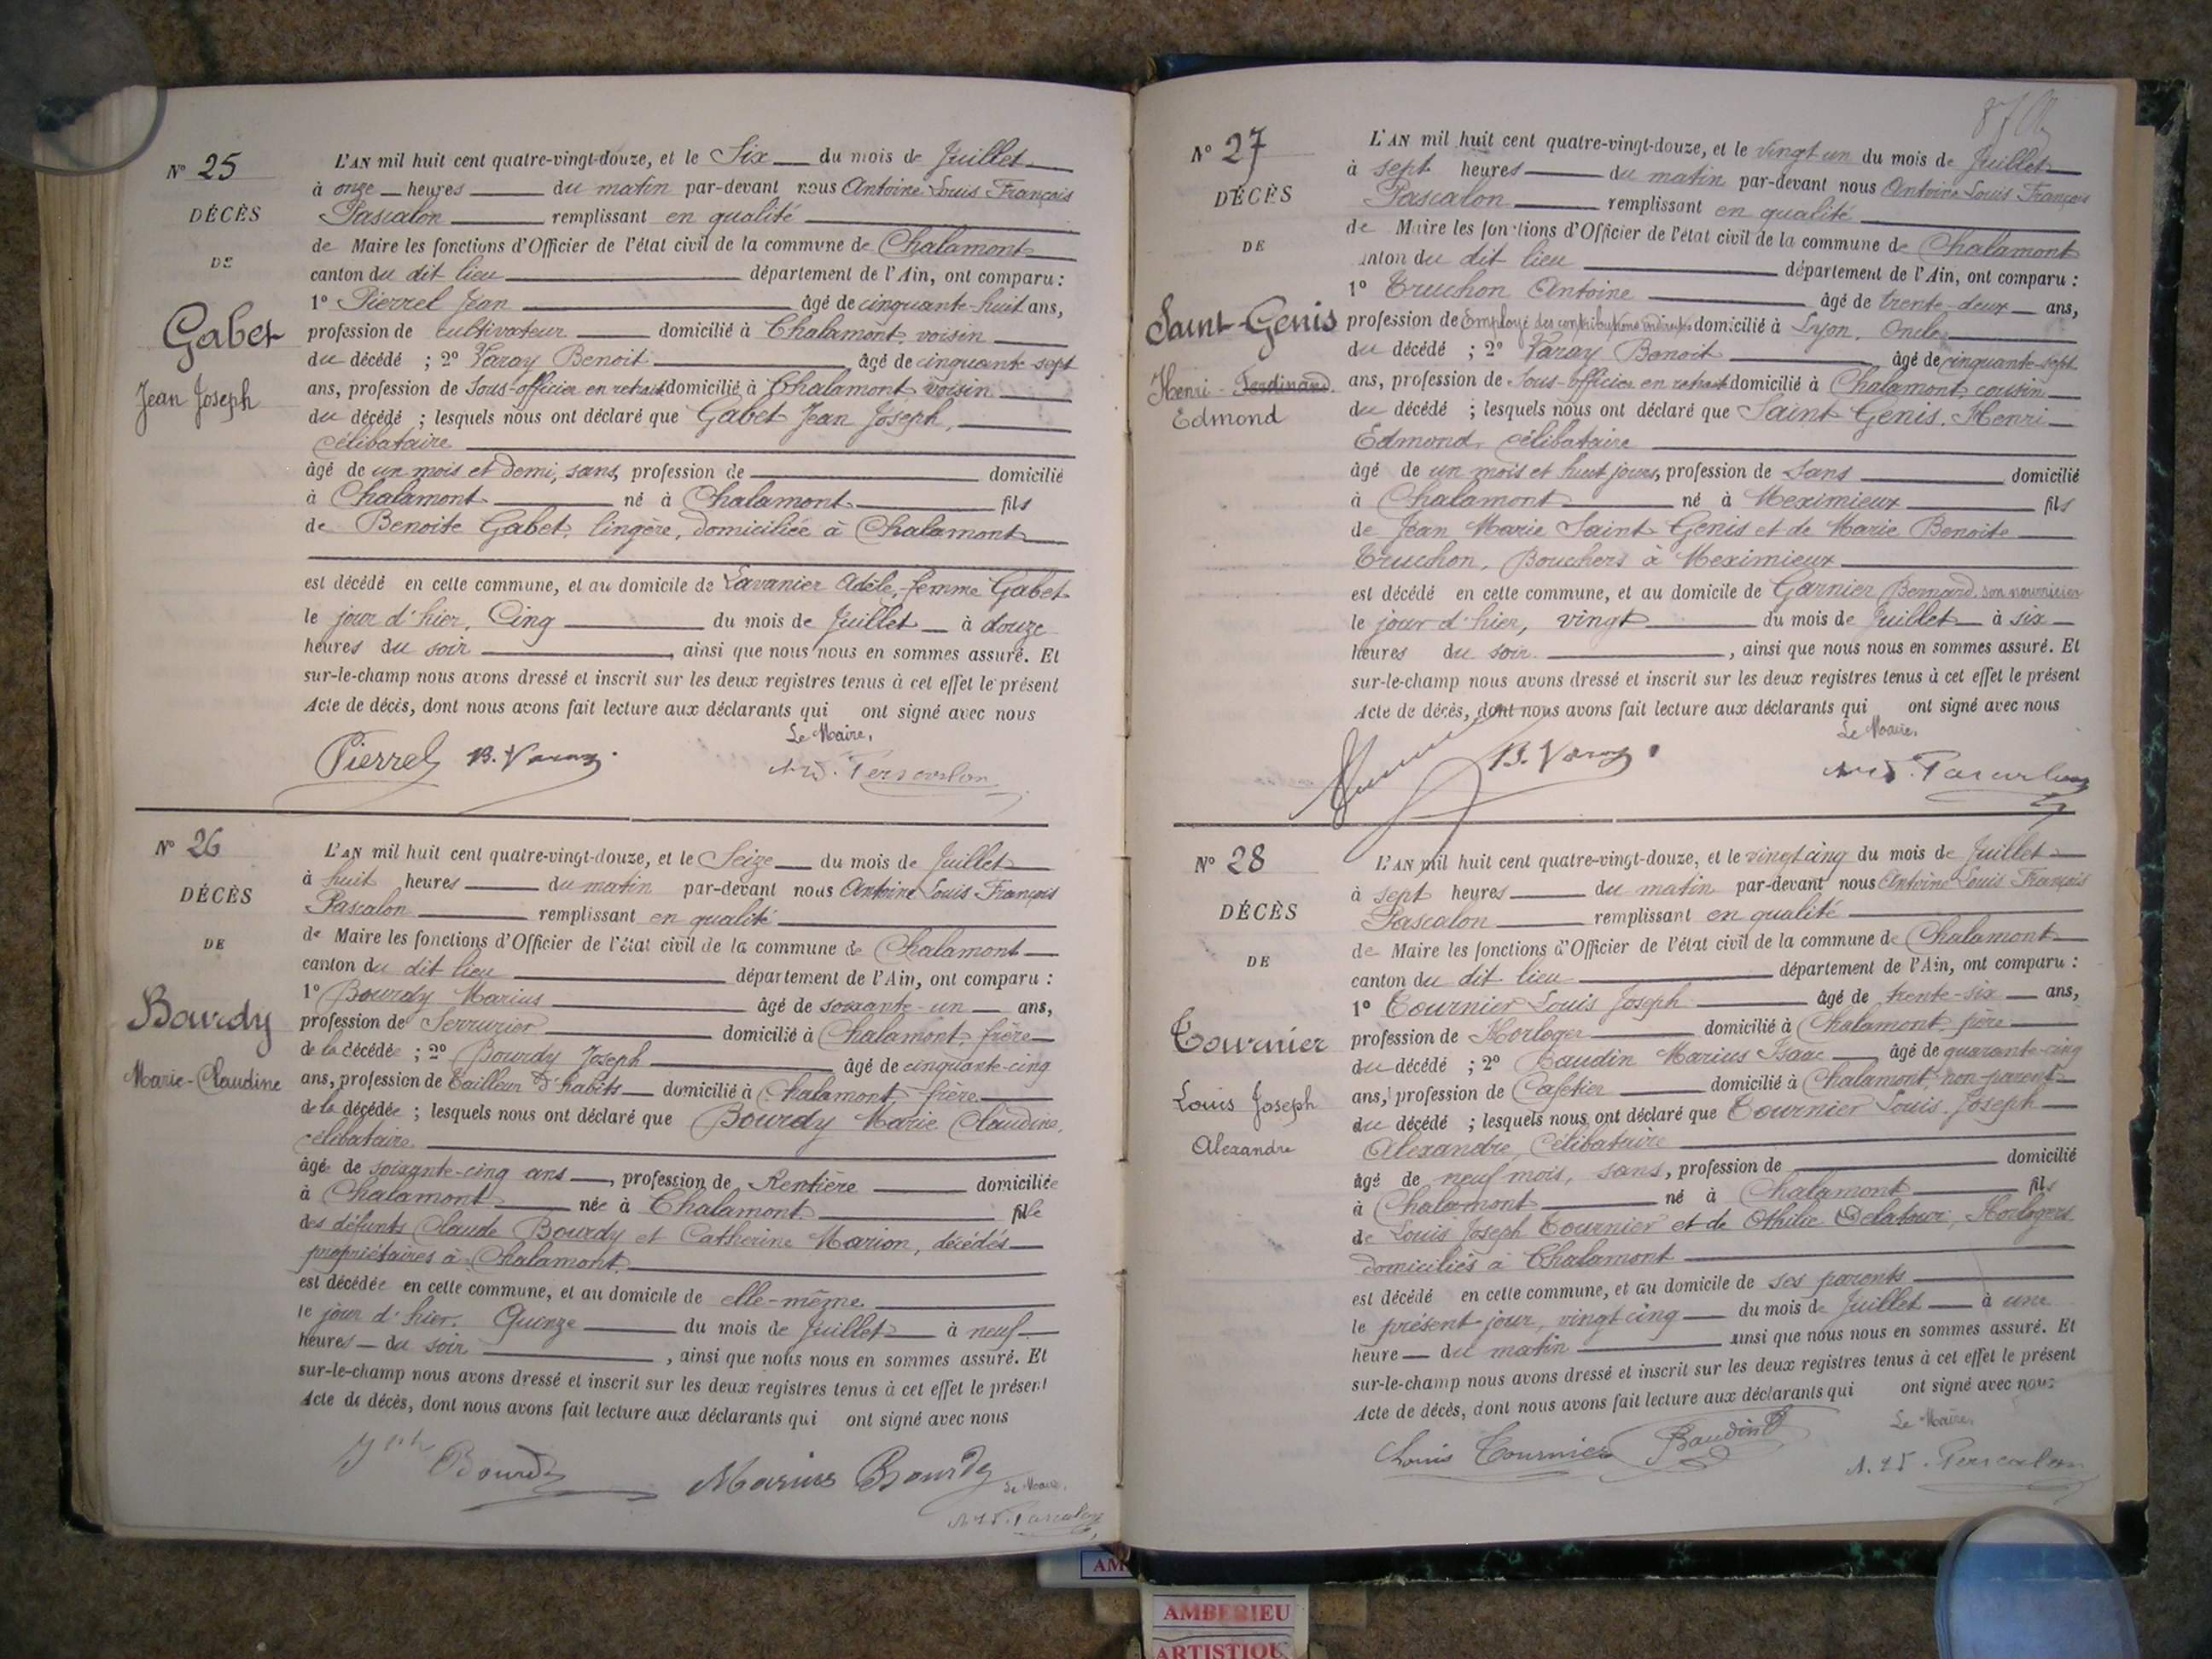 N° 25
DÉCÈS
DE
Gabet
Jean Joseph
L'AN mil huit cent quatre-vingt-douze, et le Six du mois de Juillet
à onze heures du matin par-devant nous Antoine Louis François
Pascalon remplissant en qualité
de Maire les fonctions d'Officier de l'état civil de la commune de Chalamont
canton du dit lieu département de l'Ain, ont comparu :
1° Pierrel Jean âgé de cinquante-huit ans,
profession de cultivateur domicilié à Chalamont, voisin
du décédé ; 2° Varay Benoit âgé de cinquante-sept
ans, profession de Sous-officier en retraite domicilié à Chalamont voisin
du décédé ; lesquels nous ont déclaré que Gabet Jean Joseph,
célibataire
âgé de un mois et demi, sans, profession de domicilié
à Chalamont né à Chalamont fils
de Benoite Gabet, lingère, domiciliée à Chalamont
est décédé en cette commune, et au domicile de Lavanier Adèle, femme Gabet
le jour d'hier, Cinq du mois de Juillet à douze
heures du soir, ainsi que nous nous en sommes assuré. Et
sur-le-champ nous avons dressé et inscrit sur les deux registres tenus à cet effet le présent
Acte de décès, dont nous avons fait lecture aux déclarants qui ont signé avec nous
Le Maire,
Pierrel B. Varay
N° 26
DÉCÈS
DE
Bourdy
Marie-Claudine
L'AN mil huit cent quatre-vingt-douze, et le Seize du mois de Juillet
à huit heures du matin par-devant nous Antoine Louis François
Pascalon remplissant en qualité
de Maire les fonctions d'Officier de l'état civil de la commune de Chalamont
canton du dit lieu département de l'Ain, ont comparu :
1° Bourdy Marius âgé de soixante-un ans,
profession de Serrurier domicilié à Chalamont, frère
de la décédée ; 2° Bourdy Joseph âgé de cinquante-cinq
ans, profession de Tailleur d'habits domicilié à Chalamont, frère
de la décédée ; lesquels nous ont déclaré que Bourdy Marie Claudine,
célibataire
âgée de soixante-cinq ans, profession de Rentière domiciliée
à Chalamont née à Chalamont fille
des défunts Claude Bourdy et Catherine Marion, décédés
propriétaires à Chalamont
est décédée en cette commune, et au domicile de elle-même
le jour d'hier, Quinze du mois de Juillet à neuf
heures du soir, ainsi que nous nous en sommes assuré. Et
sur-le-champ nous avons dressé et inscrit sur les deux registres tenus à cet effet le présent
Acte de décès, dont nous avons fait lecture aux déclarants qui ont signé avec nous
Bourdy Marius Bourdy
Le Maire,
N° 27
DÉCÈS
DE
Saint-Genis
Henri-Ferdinand
Edmond
L'AN mil huit cent quatre-vingt-douze, et le vingt un du mois de Juillet
à sept heures du matin par-devant nous Antoine Louis François
Pascalon remplissant en qualité
de Maire les fonctions d'Officier de l'état civil de la commune de Chalamont
anton du dit lieu département de l'Ain, ont comparu :
1° Truchon Antoine âgé de trente-deux ans,
profession de Employé des contributions indirectes domicilié à Lyon, Oncle
du décédé ; 2° Varay Benoit âgé de cinquante-sept
ans, profession de Sous-officier en retraite domicilié à Chalamont, cousin
du décédé ; lesquels nous ont déclaré que Saint-Genis, Henri
Edmond, célibataire
âgé de un mois et huit jours, profession de Sans domicilié
à Chalamont né à Meximieux fils
de Jean Marie Saint-Genis et de Marie Benoite
Truchon, Bouchers à Meximieux
est décédé en cette commune, et au domicile de Garnier Bernard, son nourricier
le jour d'hier, vingt du mois de Juillet à six
heures du soir, ainsi que nous nous en sommes assuré. Et
sur-le-champ nous avons dressé et inscrit sur les deux registres tenus à cet effet le présent
Acte de décès, dont nous avons fait lecture aux déclarants qui ont signé avec nous
Le Maire,
B. Varay
N° 28
DÉCÈS
DE
Tournier
Louis Joseph
Alexandre
L'AN mil huit cent quatre-vingt-douze, et le vingt cinq du mois de Juillet
à sept heures du matin par-devant nous Antoine Louis François
Pascalon remplissant en qualité
de Maire les fonctions d'Officier de l'état civil de la commune de Chalamont
canton du dit lieu département de l'Ain, ont comparu :
1° Tournier Louis Joseph âgé de trente-six ans,
profession de Horloger domicilié à Chalamont, père
du décédé ; 2° Baudin Marius Isaac âgé de quarante-cinq
ans, profession de Cafetier domicilié à Chalamont, non parent
du décédé ; lesquels nous ont déclaré que Tournier Louis Joseph
Alexandre, célibataire
âgé de neuf mois, sans, profession de domicilié
à Chalamont né à Chalamont fils
de Louis Joseph Tournier et de Othilie Delatour, Horlogers
domiciliés à Chalamont
est décédé en cette commune, et au domicile de ses parents
le présent jour, vingt cinq du mois de Juillet à une
heure du matin ainsi que nous nous en sommes assuré. Et
sur-le-champ nous avons dressé et inscrit sur les deux registres tenus à cet effet le présent
Acte de décès, dont nous avons fait lecture aux déclarants qui ont signé avec nous
Le Maire,
Louis Tournier Baudin
AMBERIEU